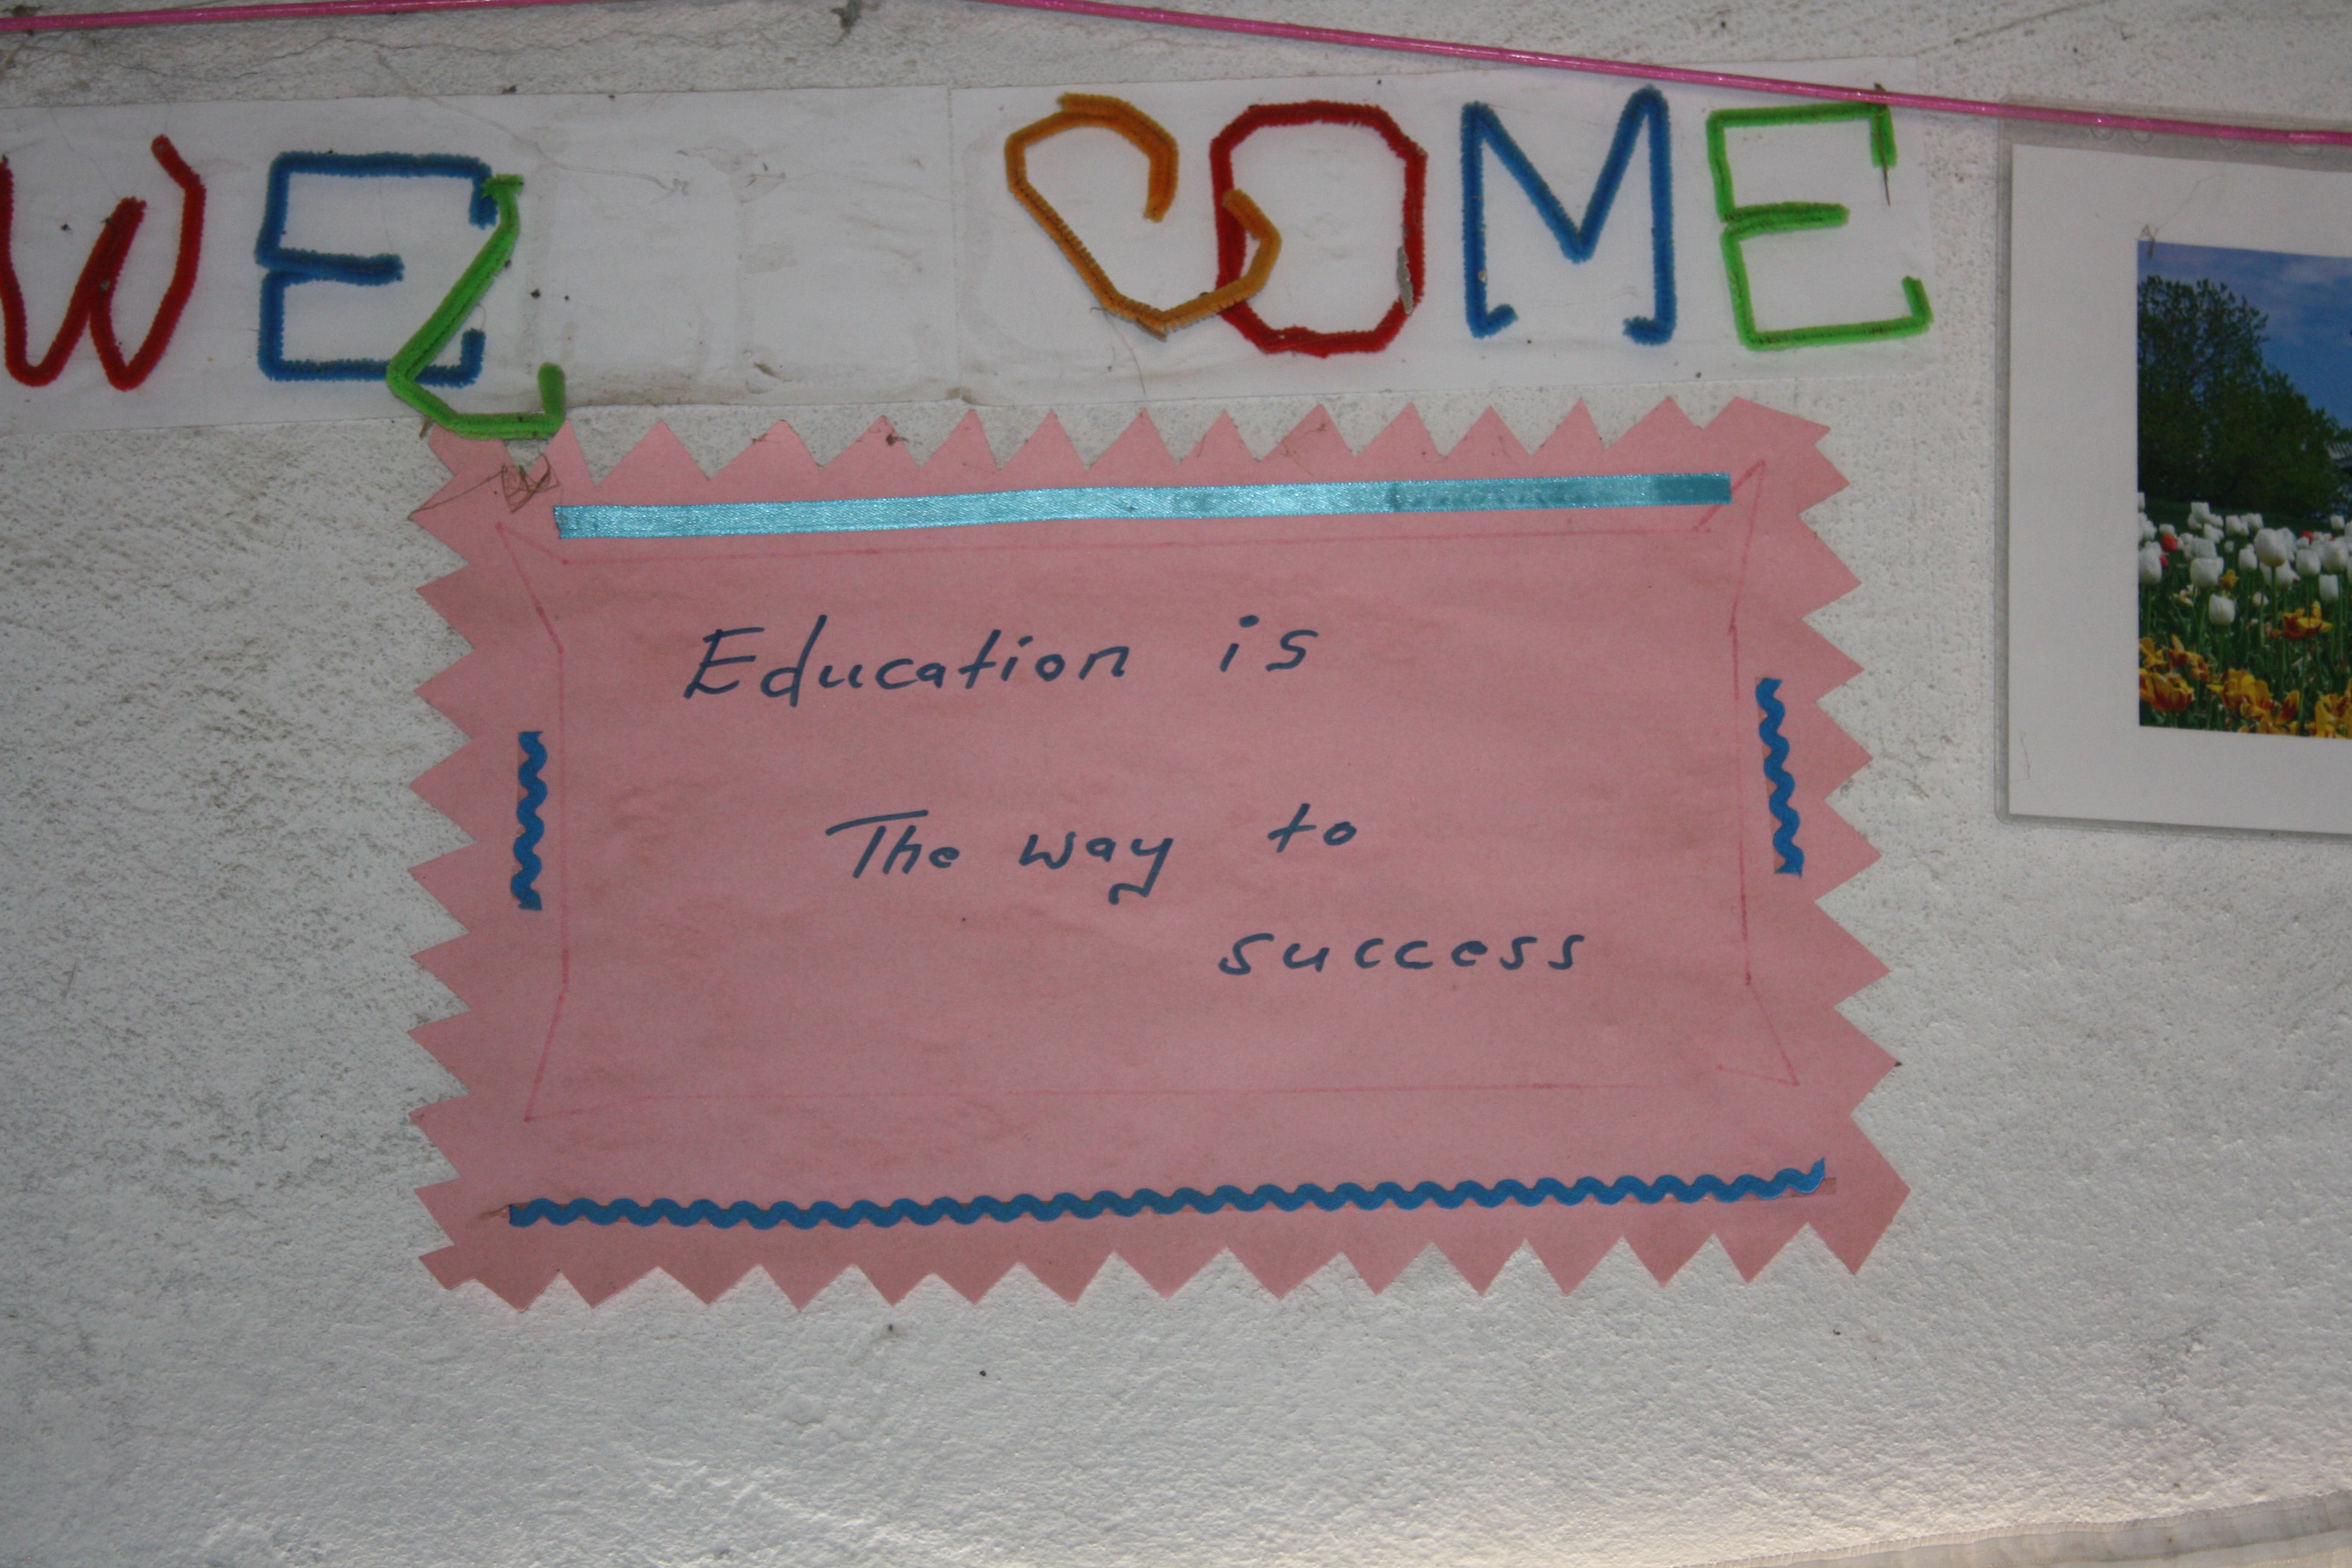 WELCOME
Education is
The way to
success